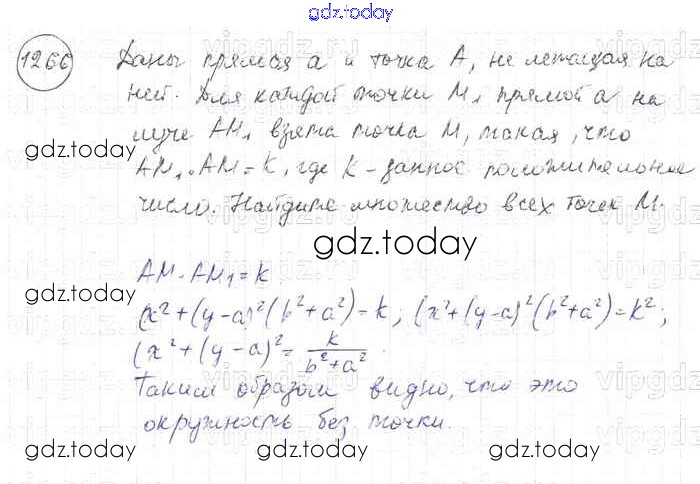 gdz.today
1266 Даны прямая a и точка A, не лежащая на
ней. Для каждой точки M₁ прямой a на
луче AM₁ взята точка M, такая, что
AM₁·AM=k, где k-данное положительное
число. Найдите множество всех точек M.
gdz.today
gdz.today
gdz.today
AM·AM₁=k
(x²+(y-a)²(b²+a²)=k; (x²+(y-a)²(b²+a²)=k²;
(x²+(y-a)²=k/(b²+a²)
gdz.today
gdz.today
Таким образом видно, что это
окружность без точки.
gdz.today gdz.today gdz.today